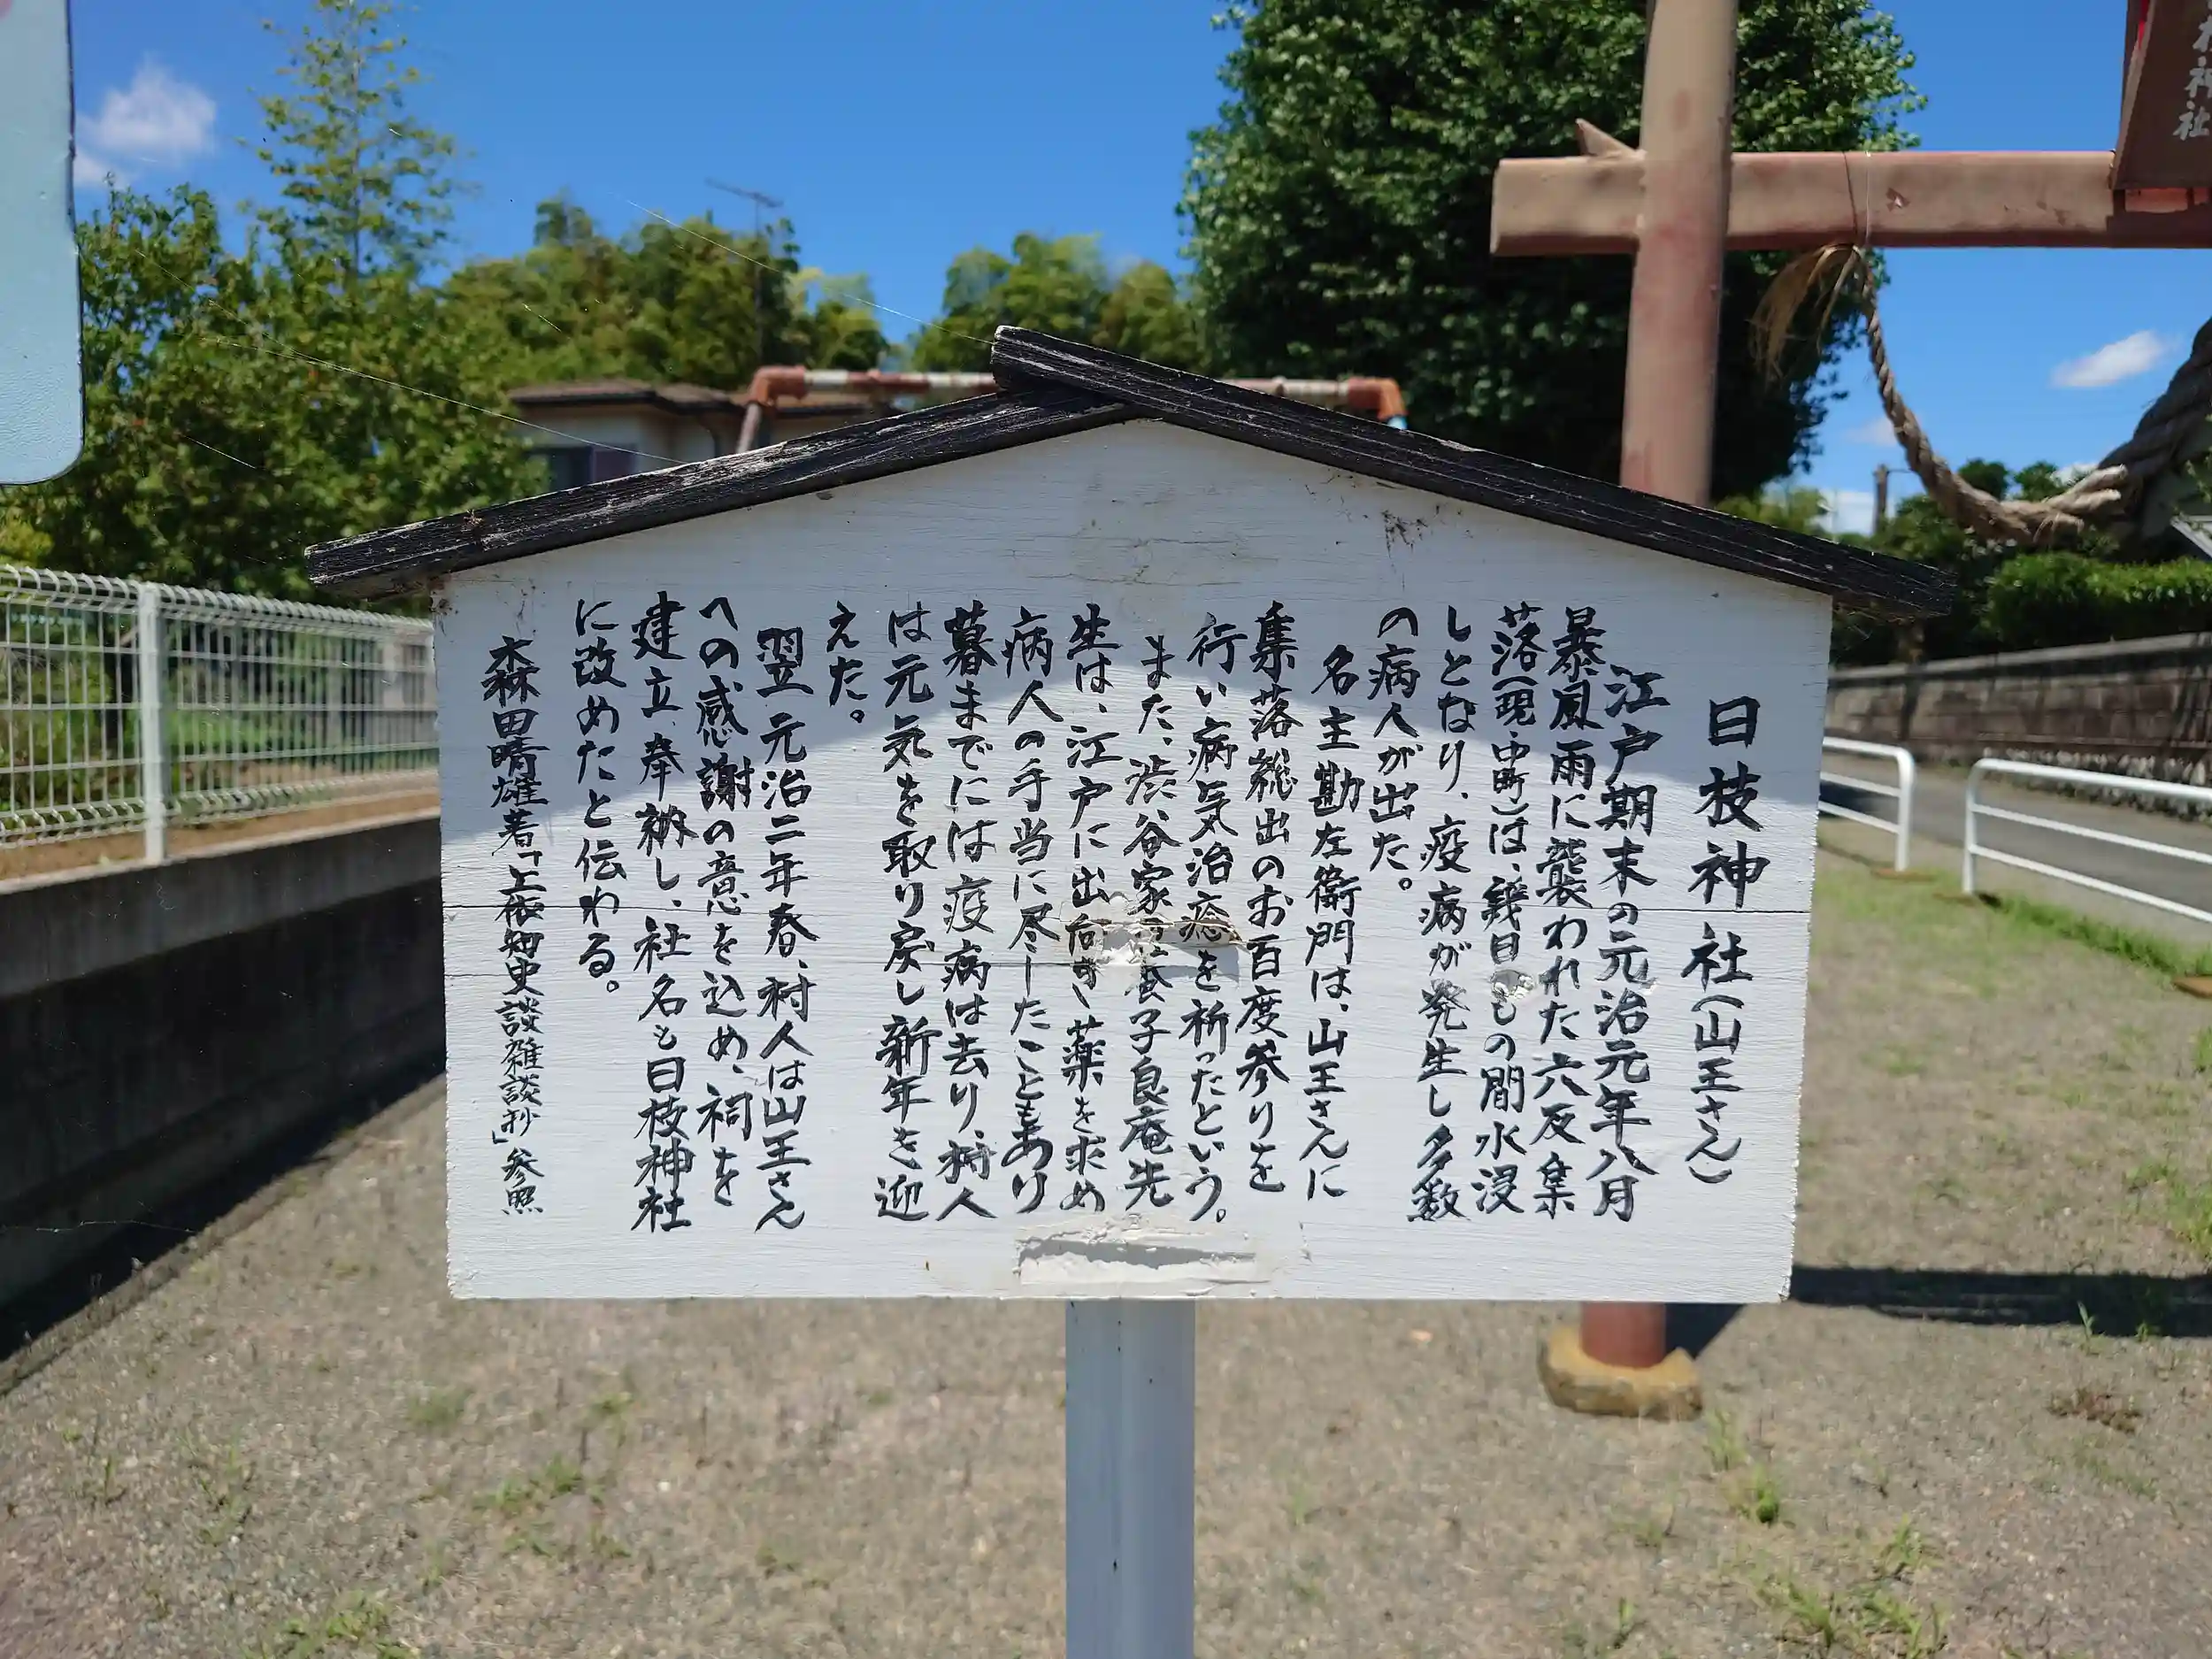 日枝神社(山王さん)
江戸期末の元治元年八月
暴風雨に襲われた六反集
落(現・中町)は、幾日もの間水浸
しとなり、疫病が発生し多数
の病人が出た。
名主勘左衛門は、山王さんに
集落総出のお百度参りを
行い病気治癒を祈ったという。
また、渋谷家の養子良庵先
生は、江戸に出向き、薬を求め
病人の手当に尽したこともあり
暮までには疫病は去り、村人
は元気を取り戻し新年を迎
えた。
翌元治二年春、村人は山王さん
への感謝の意を込め、祠を
建立、奉納し、社名も日枝神社
に改めたと伝わる。
森田晴雄著「上依知史談雑談抄」参照
神社